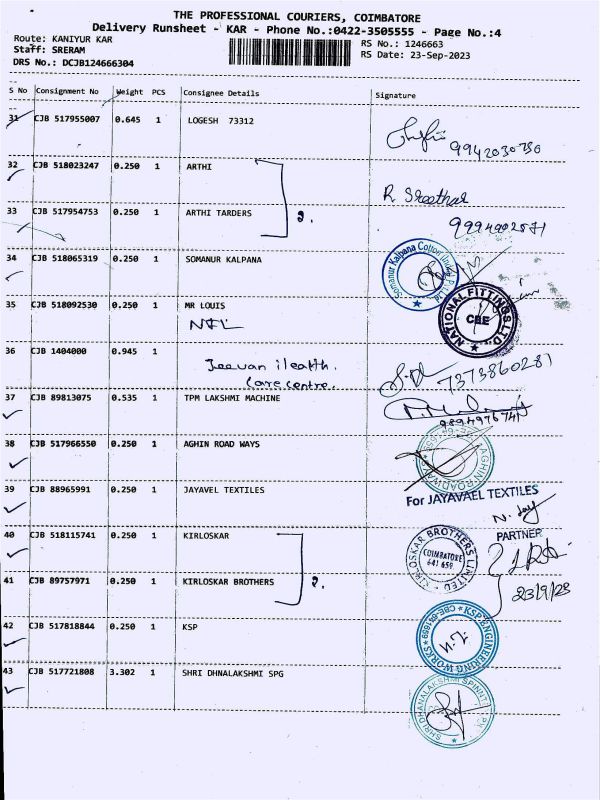 THE PROFESSIONAL COURIERS, COIMBATORE
Delivery Runsheet - KAR - Phone No.:0422-3505555 - Page No.:4
Route: KANIYUR KAR
Staff: SRERAM
DRS No.: DCJB124666304
RS No.: 1246663
RS Date: 23-Sep-2023
S No Consignment No Weight PCS Consignee Details Signature
31 CJB 517955007 0.645 1 LOGESH 73312
32 CJB 518023247 0.250 1 ARTHI
33 CJB 517954753 0.250 1 ARTHI TARDERS
2.
34 CJB 518065319 0.250 1 SOMANUR KALPANA
Somanur Kalpana Cotton
35 CJB 518092530 0.250 1 MR LOUIS
NFL
NATIONAL FITTINGS LTD
CBE
36 CJB 1404000 0.945 1
Jeevan Health
Care centre.
7373860281
37 CJB 89813075 0.535 1 TPM LAKSHMI MACHINE
38 CJB 517966550 0.250 1 AGHIN ROAD WAYS
AGHIN ROADWAYS
39 CJB 88965991 0.250 1 JAYAVEL TEXTILES
For JAYAVAEL TEXTILES
PARTNER
40 CJB 518115741 0.250 1 KIRLOSKAR
KIRLOSKAR BROTHERS LIMITED
COIMBATORE
641 659
41 CJB 89757971 0.250 1 KIRLOSKAR BROTHERS
2.
23/9/23
42 CJB 517818844 0.250 1 KSP
KSP ENGINEERING WORKS
43 CJB 517721808 3.302 1 SHRI DHNALAKSHMI SPG
SHRI DHANALAKSHMI